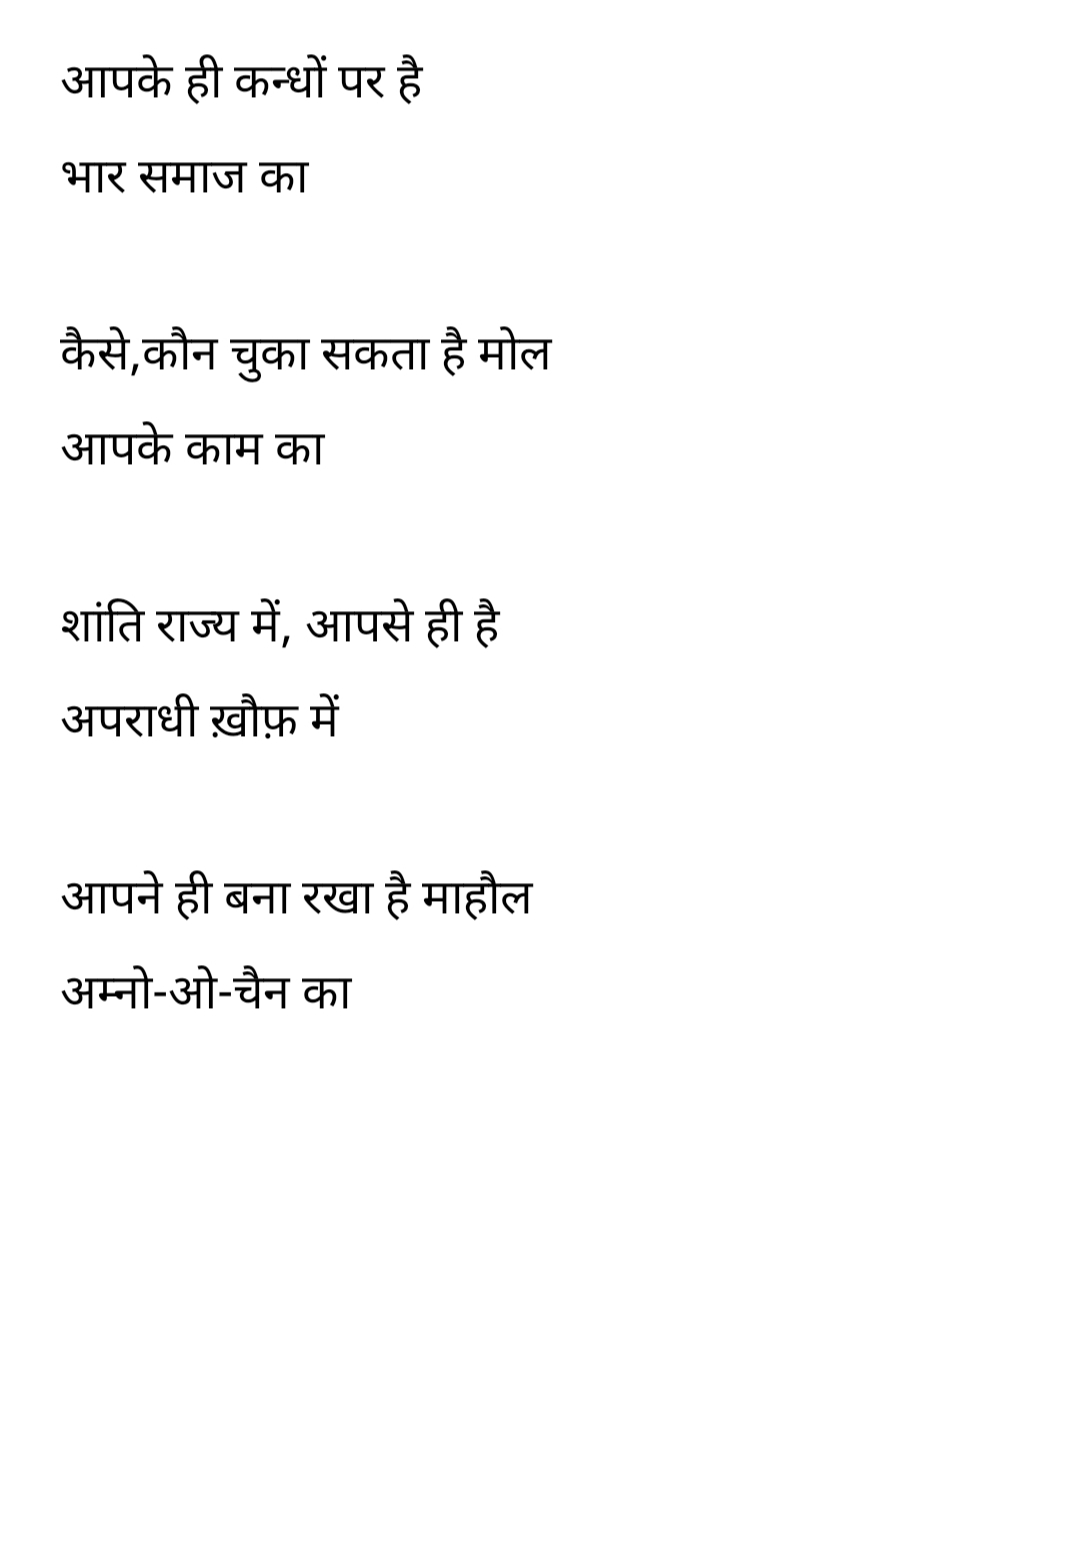 आपके ही कन्धों पर है
भार समाज का
कैसे,कौन चुका सकता है मोल
आपके काम का
शांति राज्य में, आपसे ही है
अपराधी ख़ौफ़ में
आपने ही बना रखा है माहौल
अम्नो-ओ-चैन का